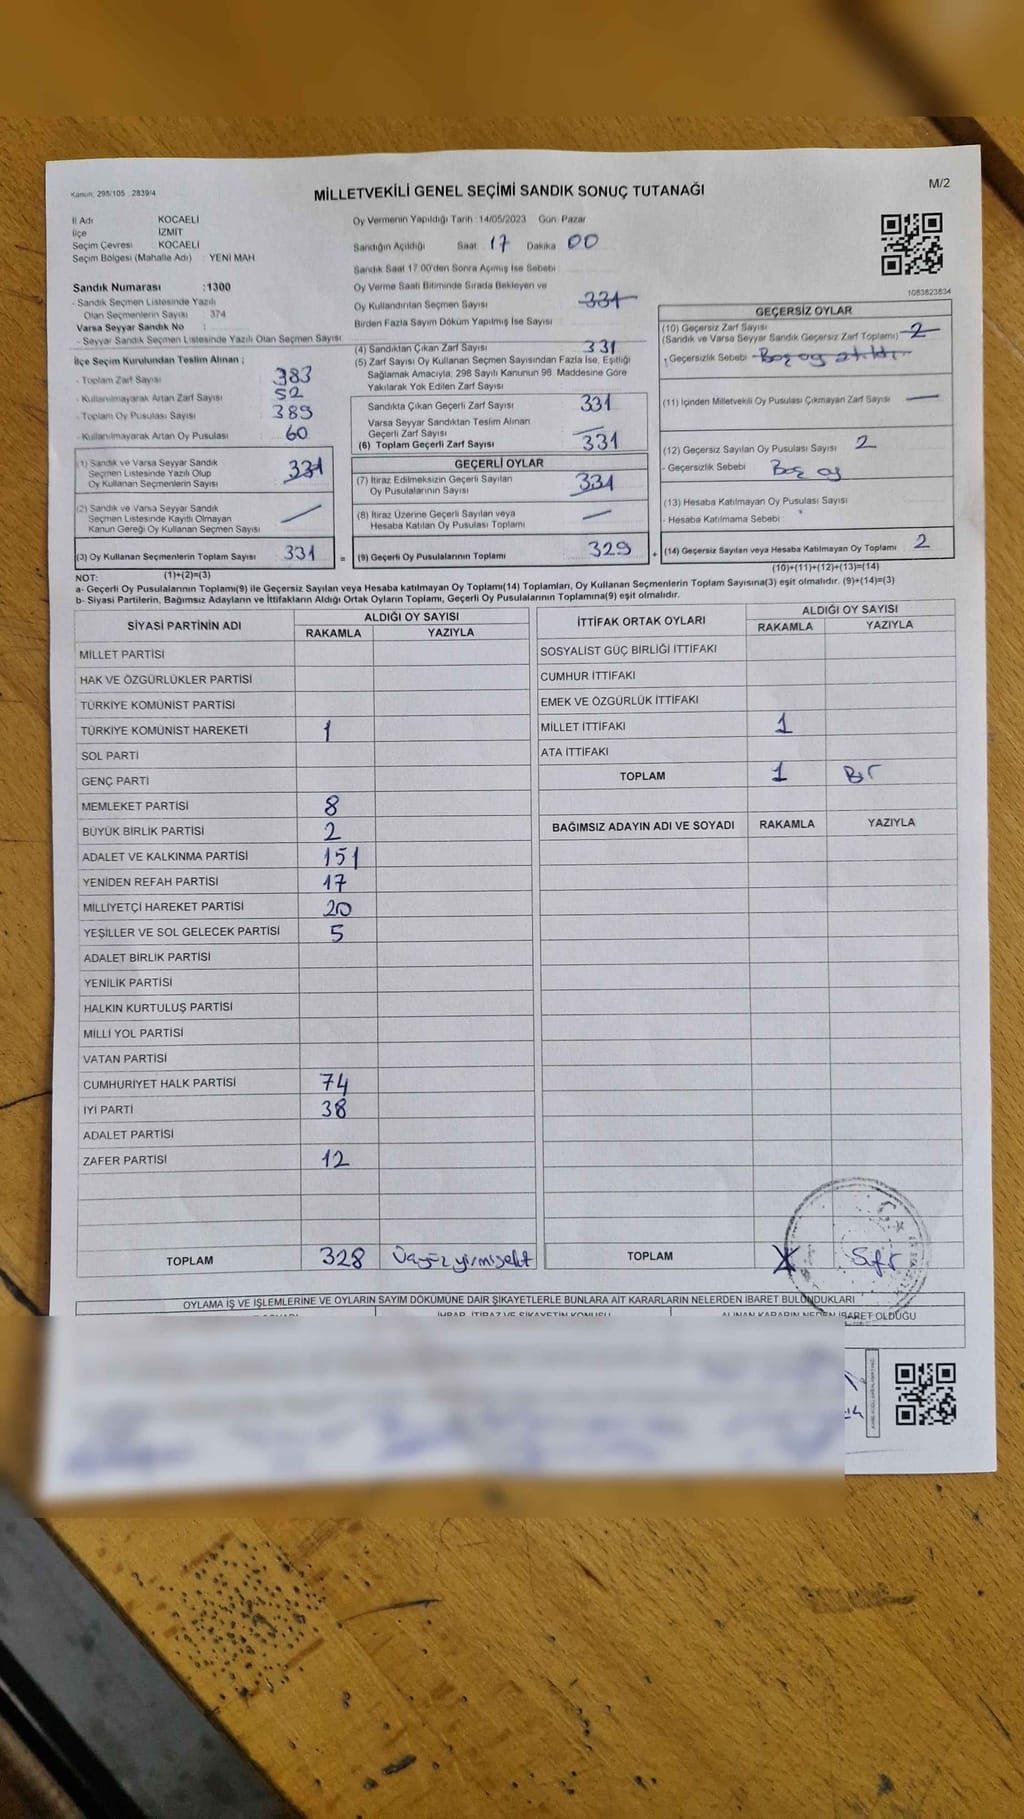 Kanun: 298/105 , 2839/4
MİLLETVEKİLİ GENEL SEÇİMİ SANDIK SONUÇ TUTANAĞI
M/2
İl Adı KOCAELİ
İlçe İZMİT
Seçim Çevresi KOCAELİ
Seçim Bölgesi (Mahalle Adı) : YENİ MAH
Sandık Numarası :1300
- Sandık Seçmen Listesinde Yazılı
Olan Seçmenlerin Sayısı : 374
Varsa Seyyar Sandık No :
- Seyyar Sandık Seçmen Listesinde Yazılı Olan Seçmen Sayısı
İlçe Seçim Kurulundan Teslim Alınan ;
- Toplam Zarf Sayısı 383
- Kullanılmayarak Artan Zarf Sayısı 52
- Toplam Oy Pusulası Sayısı 389
- Kullanılmayarak Artan Oy Pusulası 60
(1) Sandık ve Varsa Seyyar Sandık
Seçmen Listesinde Yazılı Olup
Oy Kullanan Seçmenlerin Sayısı 331
(2) Sandık ve Varsa Seyyar Sandık
Seçmen Listesinde Kayıtlı Olmayan
Kanun Gereği Oy Kullanan Seçmen Sayısı
(3) Oy Kullanan Seçmenlerin Toplam Sayısı 331 =
(1)+(2)=(3)
Oy Vermenin Yapıldığı Tarih : 14/05/2023 Gün: Pazar
Sandığın Açıldığı Saat 17 Dakika 00
Sandık Saat 17.00'den Sonra Açmış İse Sebebi :
Oy Verme Saati Bitiminde Sırada Bekleyen ve
Oy Kullandırılan Seçmen Sayısı 331
Birden Fazla Sayım Döküm Yapılmış İse Sayısı
(4) Sandıktan Çıkan Zarf Sayısı 331
(5) Zarf Sayısı Oy Kullanan Seçmen Sayısından Fazla İse, Eşitliği
Sağlamak Amacıyla, 298 Sayılı Kanunun 98. Maddesine Göre
Yakılarak Yok Edilen Zarf Sayısı
Sandıkta Çıkan Geçerli Zarf Sayısı 331
Varsa Seyyar Sandıktan Teslim Alınan
Geçerli Zarf Sayısı
(6) Toplam Geçerli Zarf Sayısı 331
GEÇERLİ OYLAR
(7) İtiraz Edilmeksizin Geçerli Sayılan
Oy Pusulalarının Sayısı 331
(8) İtiraz Üzerine Geçerli Sayılan veya
Hesaba Katılan Oy Pusulası Toplamı
(9) Geçerli Oy Pusulalarının Toplamı 329 +
1083823834
GEÇERSİZ OYLAR
(10) Geçersiz Zarf Sayısı
(Sandık ve Varsa Seyyar Sandık Geçersiz Zarf Toplamı) 2
- Geçersizlik Sebebi Boş oy atıldı
(11) İçinden Milletvekili Oy Pusulası Çıkmayan Zarf Sayısı
(12) Geçersiz Sayılan Oy Pusulası Sayısı 2
- Geçersizlik Sebebi Boş oy
(13) Hesaba Katılmayan Oy Pusulası Sayısı
- Hesaba Katılmama Sebebi
(14) Geçersiz Sayılan veya Hesaba Katılmayan Oy Toplamı 2
(10)+(11)+(12)+(13)=(14)
NOT:
a- Geçerli Oy Pusulasının Toplamı(9) ile Geçersiz Sayılan veya Hesaba katılmayan Oy Toplamı(14) Toplamları, Oy Kullanan Seçmenlerin Toplam Sayısına(3) eşit olmalıdır. (9)+(14)=(3)
b- Siyasi Partilerin, Bağımsız Adayların ve İttifakların Aldığı Ortak Oyların Toplamı, Geçerli Oy Pusulalarının Toplamına(9) eşit olmalıdır.
SİYASİ PARTİNİN ADI ALDIĞI OY SAYISI
RAKAMLA YAZIYLA
MİLLET PARTİSİ
HAK VE ÖZGÜRLÜKLER PARTİSİ
TÜRKİYE KOMÜNİST PARTİSİ
TÜRKİYE KOMÜNİST HAREKETİ 1
SOL PARTİ
GENÇ PARTİ
MEMLEKET PARTİSİ 8
BÜYÜK BİRLİK PARTİSİ 2
ADALET VE KALKINMA PARTİSİ 151
YENİDEN REFAH PARTİSİ 17
MİLLİYETÇİ HAREKET PARTİSİ 20
YEŞİLLER VE SOL GELECEK PARTİSİ 5
ADALET BİRLİK PARTİSİ
YENİLİK PARTİSİ
HALKIN KURTULUŞ PARTİSİ
MİLLİ YOL PARTİSİ
VATAN PARTİSİ
CUMHURİYET HALK PARTİSİ 74
İYİ PARTİ 38
ADALET PARTİSİ
ZAFER PARTİSİ 12
TOPLAM 328 Üçyüz yirmisekiz
İTTİFAK ORTAK OYLARI ALDIĞI OY SAYISI
RAKAMLA YAZIYLA
SOSYALİST GÜÇ BİRLİĞİ İTTİFAKI
CUMHUR İTTİFAKI
EMEK VE ÖZGÜRLÜK İTTİFAKI
MİLLET İTTİFAKI 1
ATA İTTİFAKI
TOPLAM 1 Bir
BAĞIMSIZ ADAYIN ADI VE SOYADI RAKAMLA YAZIYLA
TOPLAM X Sıfır
OYLAMA İŞ VE İŞLEMLERİNE VE OYLARIN SAYIM DÖKÜMÜNE DAİR ŞİKAYETLERLE BUNLARA AİT KARARLARIN NELERDEN İBARET BULUNDUKLARI
İHBAR, İTİRAZ VE ŞİKAYETİN KONUSU ALINAN KARARIN NEDEN İBARET OLDUĞU